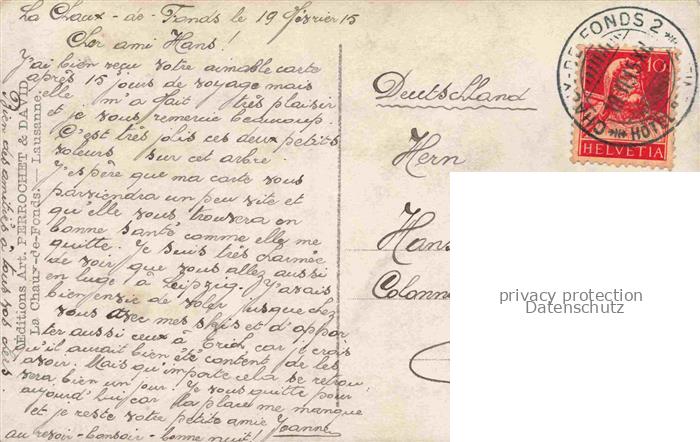 La Chaux-de-Fonds le 19 février 15
Cher ami Hans!
J'ai bien reçu votre aimable carte
après 15 jours de voyage mais
elle m'a fait très plaisir
et je vous remercie beaucoup.
C'est très jolis ces deux petits
voleurs sur cet arbre.
J'espère que ma carte vous
parviendra un peu vite et
qu'elle vous trouvera en
bonne santé comme elle me
quitte. Je suis très charmée
de voir que vous allez aussi
en luge à Leipzig. J'avais
bien envie de voler jusque chez
vous avec mes skis et d'appor
ter aussi ceux à Erich car je crois
qu'il aurait bien été content de les
avoir. Mais qu'importe cela se retrou
vera bien un jour. Je vous quitte pour
aujourd'hui car la place me manque
et je reste votre petite amie Jeanne
au revoir - bonsoir - bonne nuit!
Bien des amitiés à tous vos
Editions Art. PERROCHET & DAVID
La Chaux-de-Fonds. — Lausanne.
Deutschland
Hern
Hans
Colonn
CHAUX-DE-FONDS 2
HOTEL
10
HELVETIA
privacy protection
Datenschutz